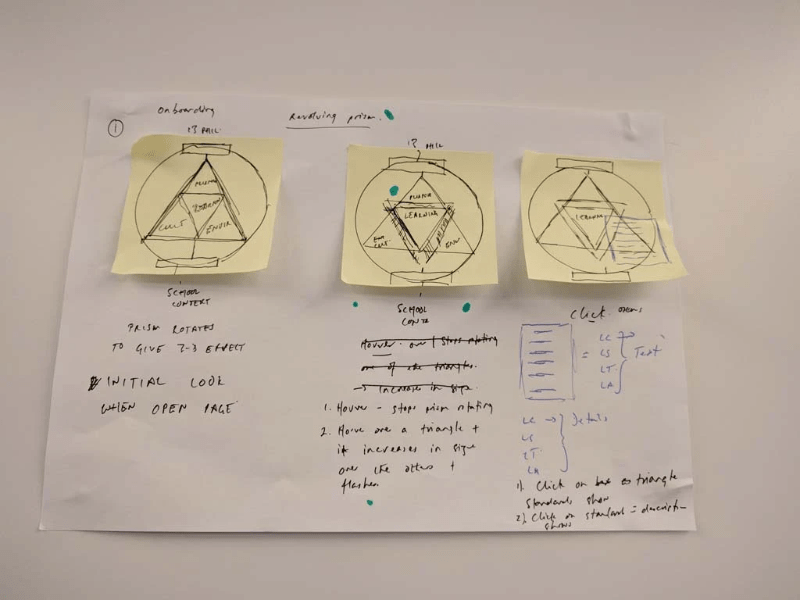 Onboarding
Revolving prism.
1
CULT
ENVIR
SCHOOL
CONTEXT
PRISM ROTATES
TO GIVE 2-3 EFFECT
INITIAL LOOK
WHEN OPEN PAGE
LEARNING
CULT
ENV
SCHOOL
Houver - over stops rotating
one of the triangles.
→ Increases in size.
1. Houver - stops prism rotating
2. over a triangle +
it increases in size
over the others +
flashes
LEARNING
Click opens
= LC
LS
LT
LA
Text
LC → Details
LS
LT
LA
1). Click on triangle
Standards show
2). Click on standard = description
shows